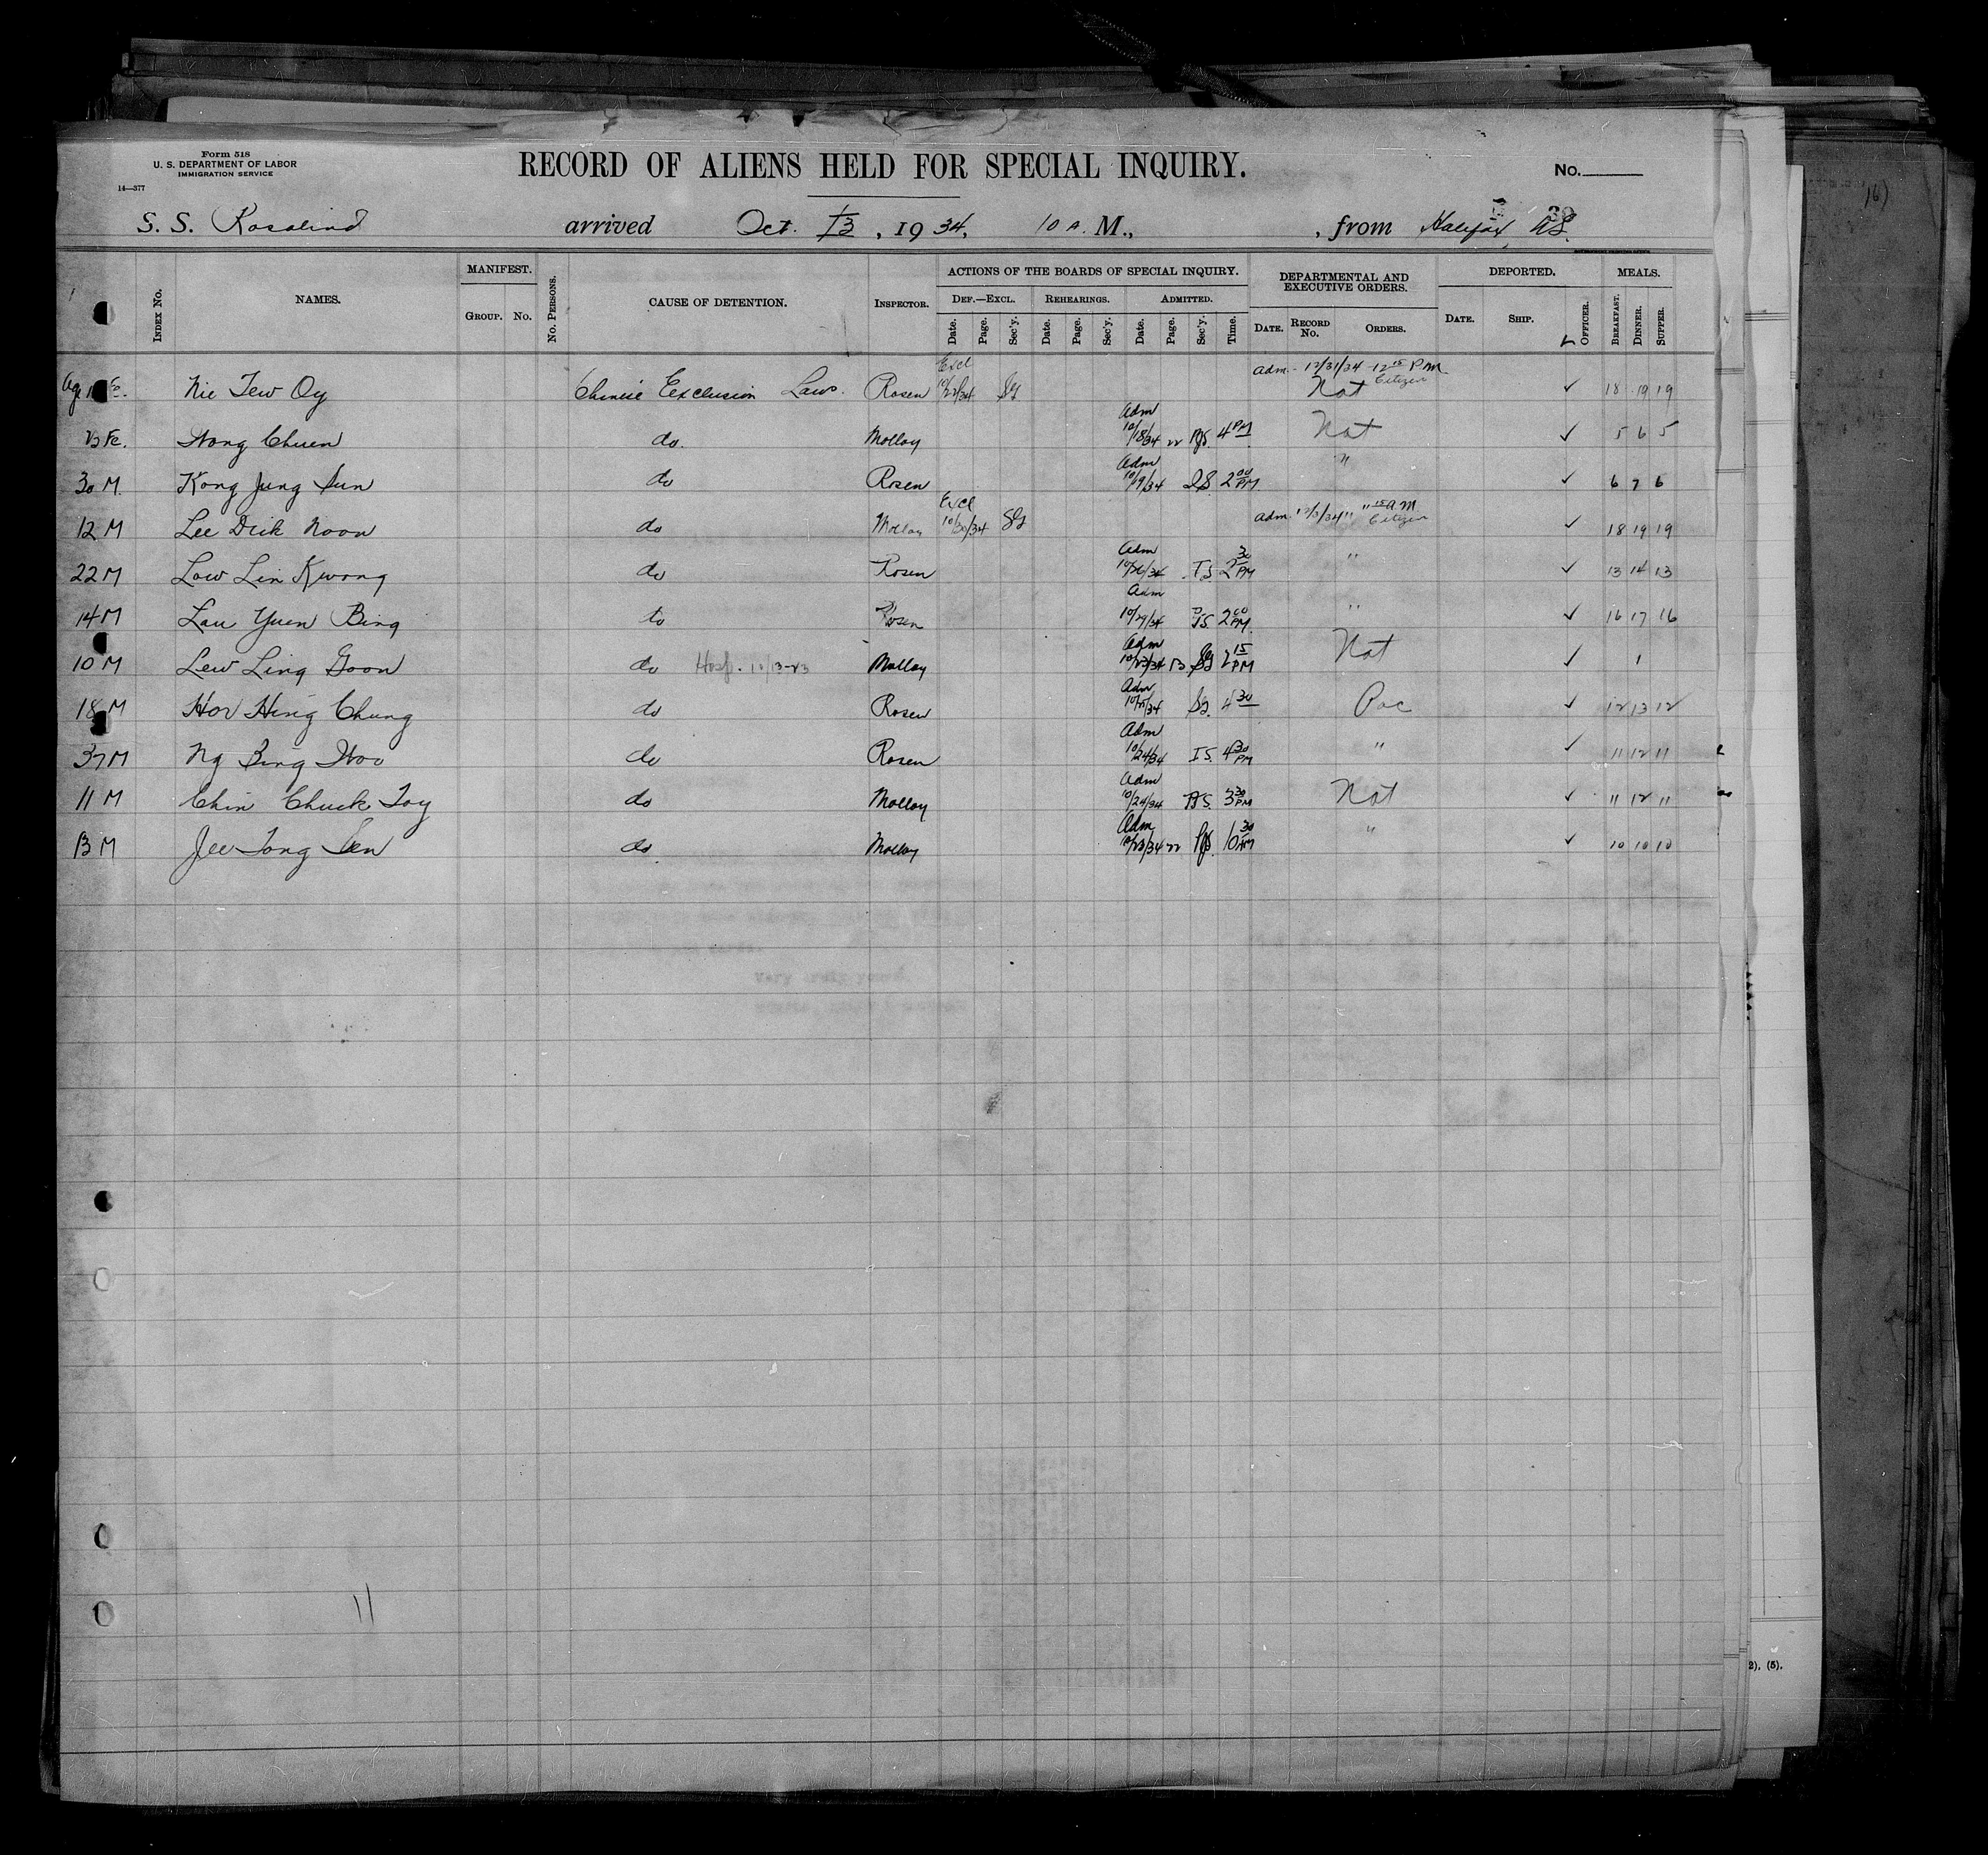 Form 518
U. S. DEPARTMENT OF LABOR
IMMIGRATION SERVICE
14—377
RECORD OF ALIENS HELD FOR SPECIAL INQUIRY.
No.
S. S. Rosalind arrived Oct. 13, 1934, 10 A. M., , from Halifax, NS.
MANIFEST. ACTIONS OF THE BOARDS OF SPECIAL INQUIRY. DEPARTMENTAL AND EXECUTIVE ORDERS. DEPORTED. MEALS.
Index No. NAMES. Group. No. No. Persons. CAUSE OF DETENTION. Inspector. Def.—Excl. Rehearings. Admitted.
Date. Page. Sec'y. Date. Page. Sec'y. Date. Page. Sec'y. Time. Date. Record No. Orders. Date. Ship. Officer. Breakfast. Dinner. Supper.
Nie Tew Oy Chinese Exclusion Laws. Rosen Excl 10/22/34 Sg Adm. - 12/31/34 - 12 15 PM Nat Citizen ✓ 18 19 19
Fe. Wong Chuen do. Molloy Adm 10/18/34 22 4 PM Nat ✓ 5 6 5
30 M. Kong Jung Sun do Rosen Adm 10/19/34 IS 2 00 PM " ✓ 6 7 6
12 M Lee Dick Noon do Molloy Excl 10/30/34 Sg Adm. 12/31/34 " " 15 AM Citizen ✓ 18 19 19
22 M Low Lin Kwong do Rosen Adm 10/26/34 IS 2 30 PM " ✓ 13 14 13
14 M Lau Yuen Bing do Rosen Adm 10/29/34 IS 2 00 PM. " ✓ 16 17 16
10 M Lew Ling Goon do Hosp. 10/13-23 Molloy Adm 10/23/34 13 Sg 2 15 PM Nat ✓ 1
18 M Hor Hing Chung do Rosen Adm 10/25/34 Sg. 4 30 ✓ 12 13 12
37 M Ng Bing Woo do Rosen Adm 10/24/34 IS. 4 30 PM " ✓ 11 12 11
11 M Chin Chuck Toy do Molloy Adm 10/24/34 3 30 PM Nat ✓ 11 12 11
13 M Jee Tong Sen do Molloy Adm 10/23/34 22 10 30 AM " ✓ 10 10 10
11
2), (5).